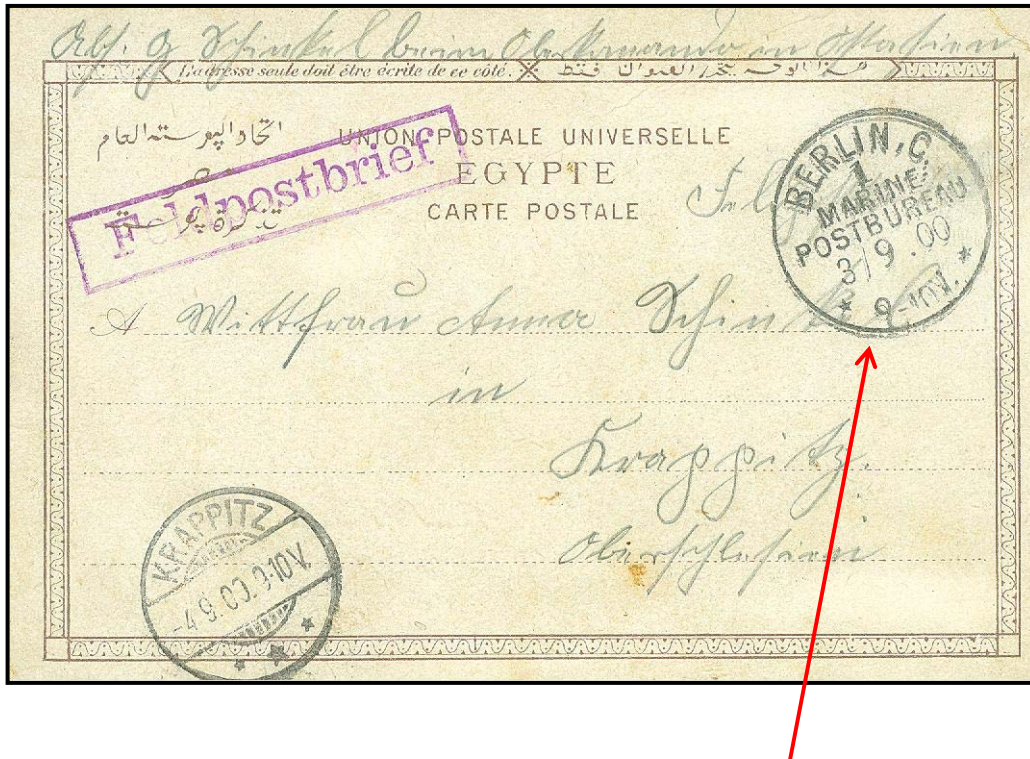 Abs. G Schinkel beim Oberkomando in Ostasien.
L'adresse seule doit être écrite de ce côté.
هذا الوجه تحرر العنوان فقط
اتحاد البوسته العام
UNION POSTALE UNIVERSELLE
EGYPTE
CARTE POSTALE
Feldpostbrief
BERLIN, C.
1
MARINE-
POSTBUREAU
3/9.00
* 9-10V. *
A Wittfrau Anna Schinkel
in
Krappitz.
Oberschlesien
KRAPPITZ
-4.9.00.9-10V.